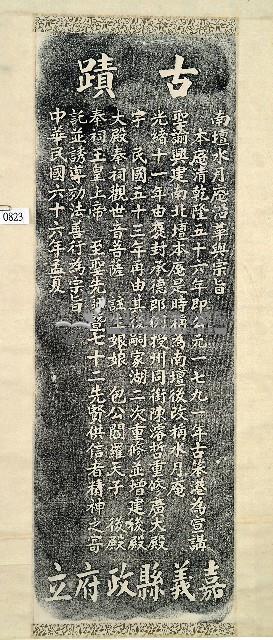 古蹟
南壇水月庵沿革與宗旨
本庵清乾隆五十六年即公元一七九一年古柴港為宣講
聖諭興建南北壇本庵是時稱為南壇後改稱水月庵
光緒十一年由褒封承德郎衍授州同銜陳濬哲重修廣大殿
宇民國五十三年再由其後嗣家湖二次重修並增建後殿
大殿奉祠觀世音菩薩 註生娘娘 包公閻羅天子 後殿
奉祠玉皇上帝 至聖先師暨七十二先賢供信者精神之寄
託並誘導勸法善行為宗旨
中華民國六十六年孟夏
嘉義縣政府立
0823